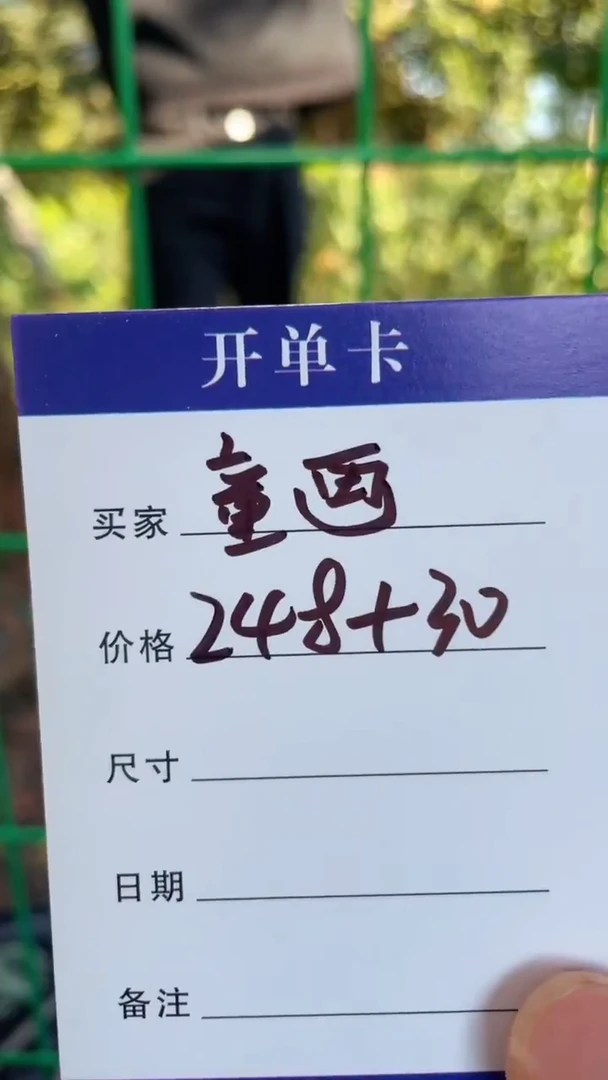 开单卡
买家 童画
价格 248+30
尺寸
日期
备注